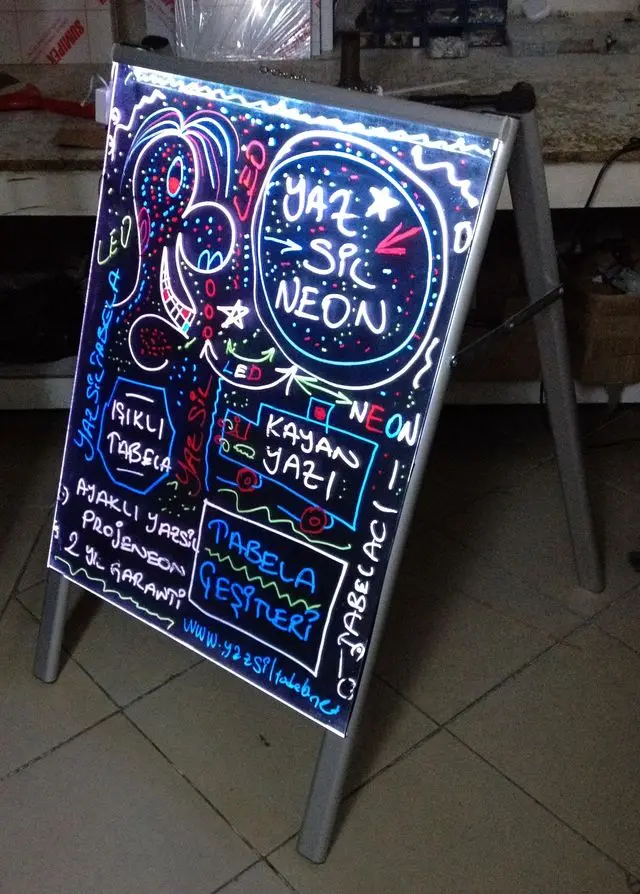 LED
LED
YAZ
SİL
NEON
D
YAZ SİL TABELA
YAZ SİL
LED
NEON
IŞIKLI
TABELA
KAYAN
YAZI
AYAKLI YAZSİL
PROJENEON
2 YIL GARANTİ
TABELA
ÇEŞİTLERİ
TABELACI